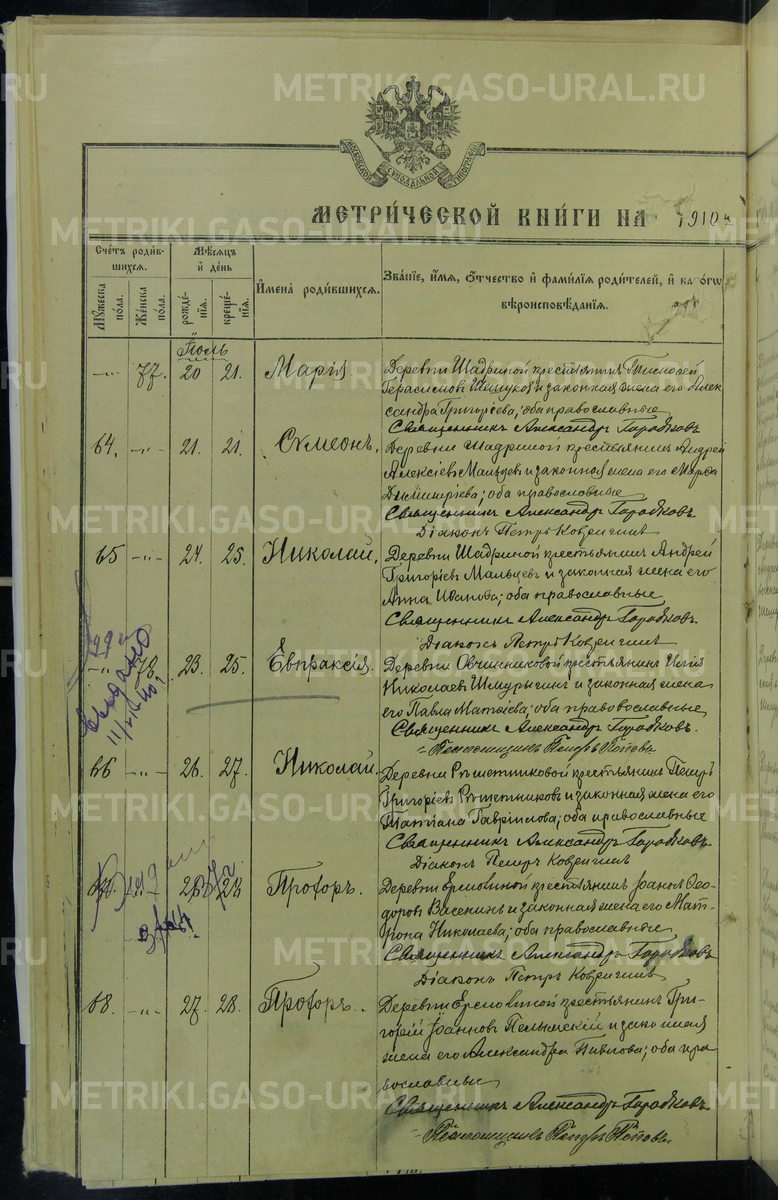 МЕТРИ́ЧЕСКОЙ КНИ́ГИ НА 1910 г.
Счетъ роди́вшихся.
Му́жеска по́ла.
Же́нска по́ла.
Мѣсяцъ и день
рожде́нія.
креще́нія.
И҆мена̀ роди́вшихся.
Зва́нїе, и҆́мѧ, ѻ҆́тчество и҆ фами́лїѧ роди́телей, и҆ како́гѡ вѣроисповѣ́данїѧ.
Іюль
77. 20 21. Марія
Деревни Шадриной крестьянинъ
Герасимовъ и законная жена его Алек-
сандра Григорiева; оба православные
Священникъ Александръ Городковъ
64. -"- 21. 21. Сѵмеонъ.
Деревни Шадриной крестьянинъ Андрей
Алексіевъ Мальцевъ и законная жена его Марѳа
Димитріева; оба православные
Священникъ Александръ Городковъ.
Діаконъ Петръ Ковригинъ
65 -"- 24. 25. Николай.
Деревни Шадриной крестьянинъ Андрей
Григоріевъ Мальцевъ и законная жена его
Анна Иванова; оба православные
Священникъ Александръ Городковъ.
Діаконъ Петръ Ковригинъ
-"- 78 23. 25. Евпраксія.
Деревни Овчинниковой крестьянинъ Илія
Николаевъ и законная жена
его Павла Матѳіева; оба православные
Священникъ Александръ Городковъ.
Псаломщикъ Петръ Поповъ
выдано
66 -"- 26. 27. Николай.
Деревни Рѣшетниковой крестьянинъ Петръ
Григоріевъ Рѣшетниковъ и законная жена его
Татіана Гавріилова; оба православные
Священникъ Александръ Городковъ.
Діаконъ Петръ Ковригинъ
28 Прохоръ.
Деревни Ермовиной крестьянинъ Іоаннъ Ѳео-
доровъ Васенинъ и законная жена его Мат-
рона Николаева; оба православные
Священникъ Александръ Городковъ
Діаконъ Петръ Ковригинъ
68. -"- 27. 28. Прохоръ.
Деревни Ермовиной крестьянинъ Гри-
горій Іоанновъ и законная
жена его Александра Павлова; оба пра
вославные
Священникъ Александръ Городковъ.
Псаломщикъ Петръ Поповъ.
METRIKI.GASO-URAL.RU